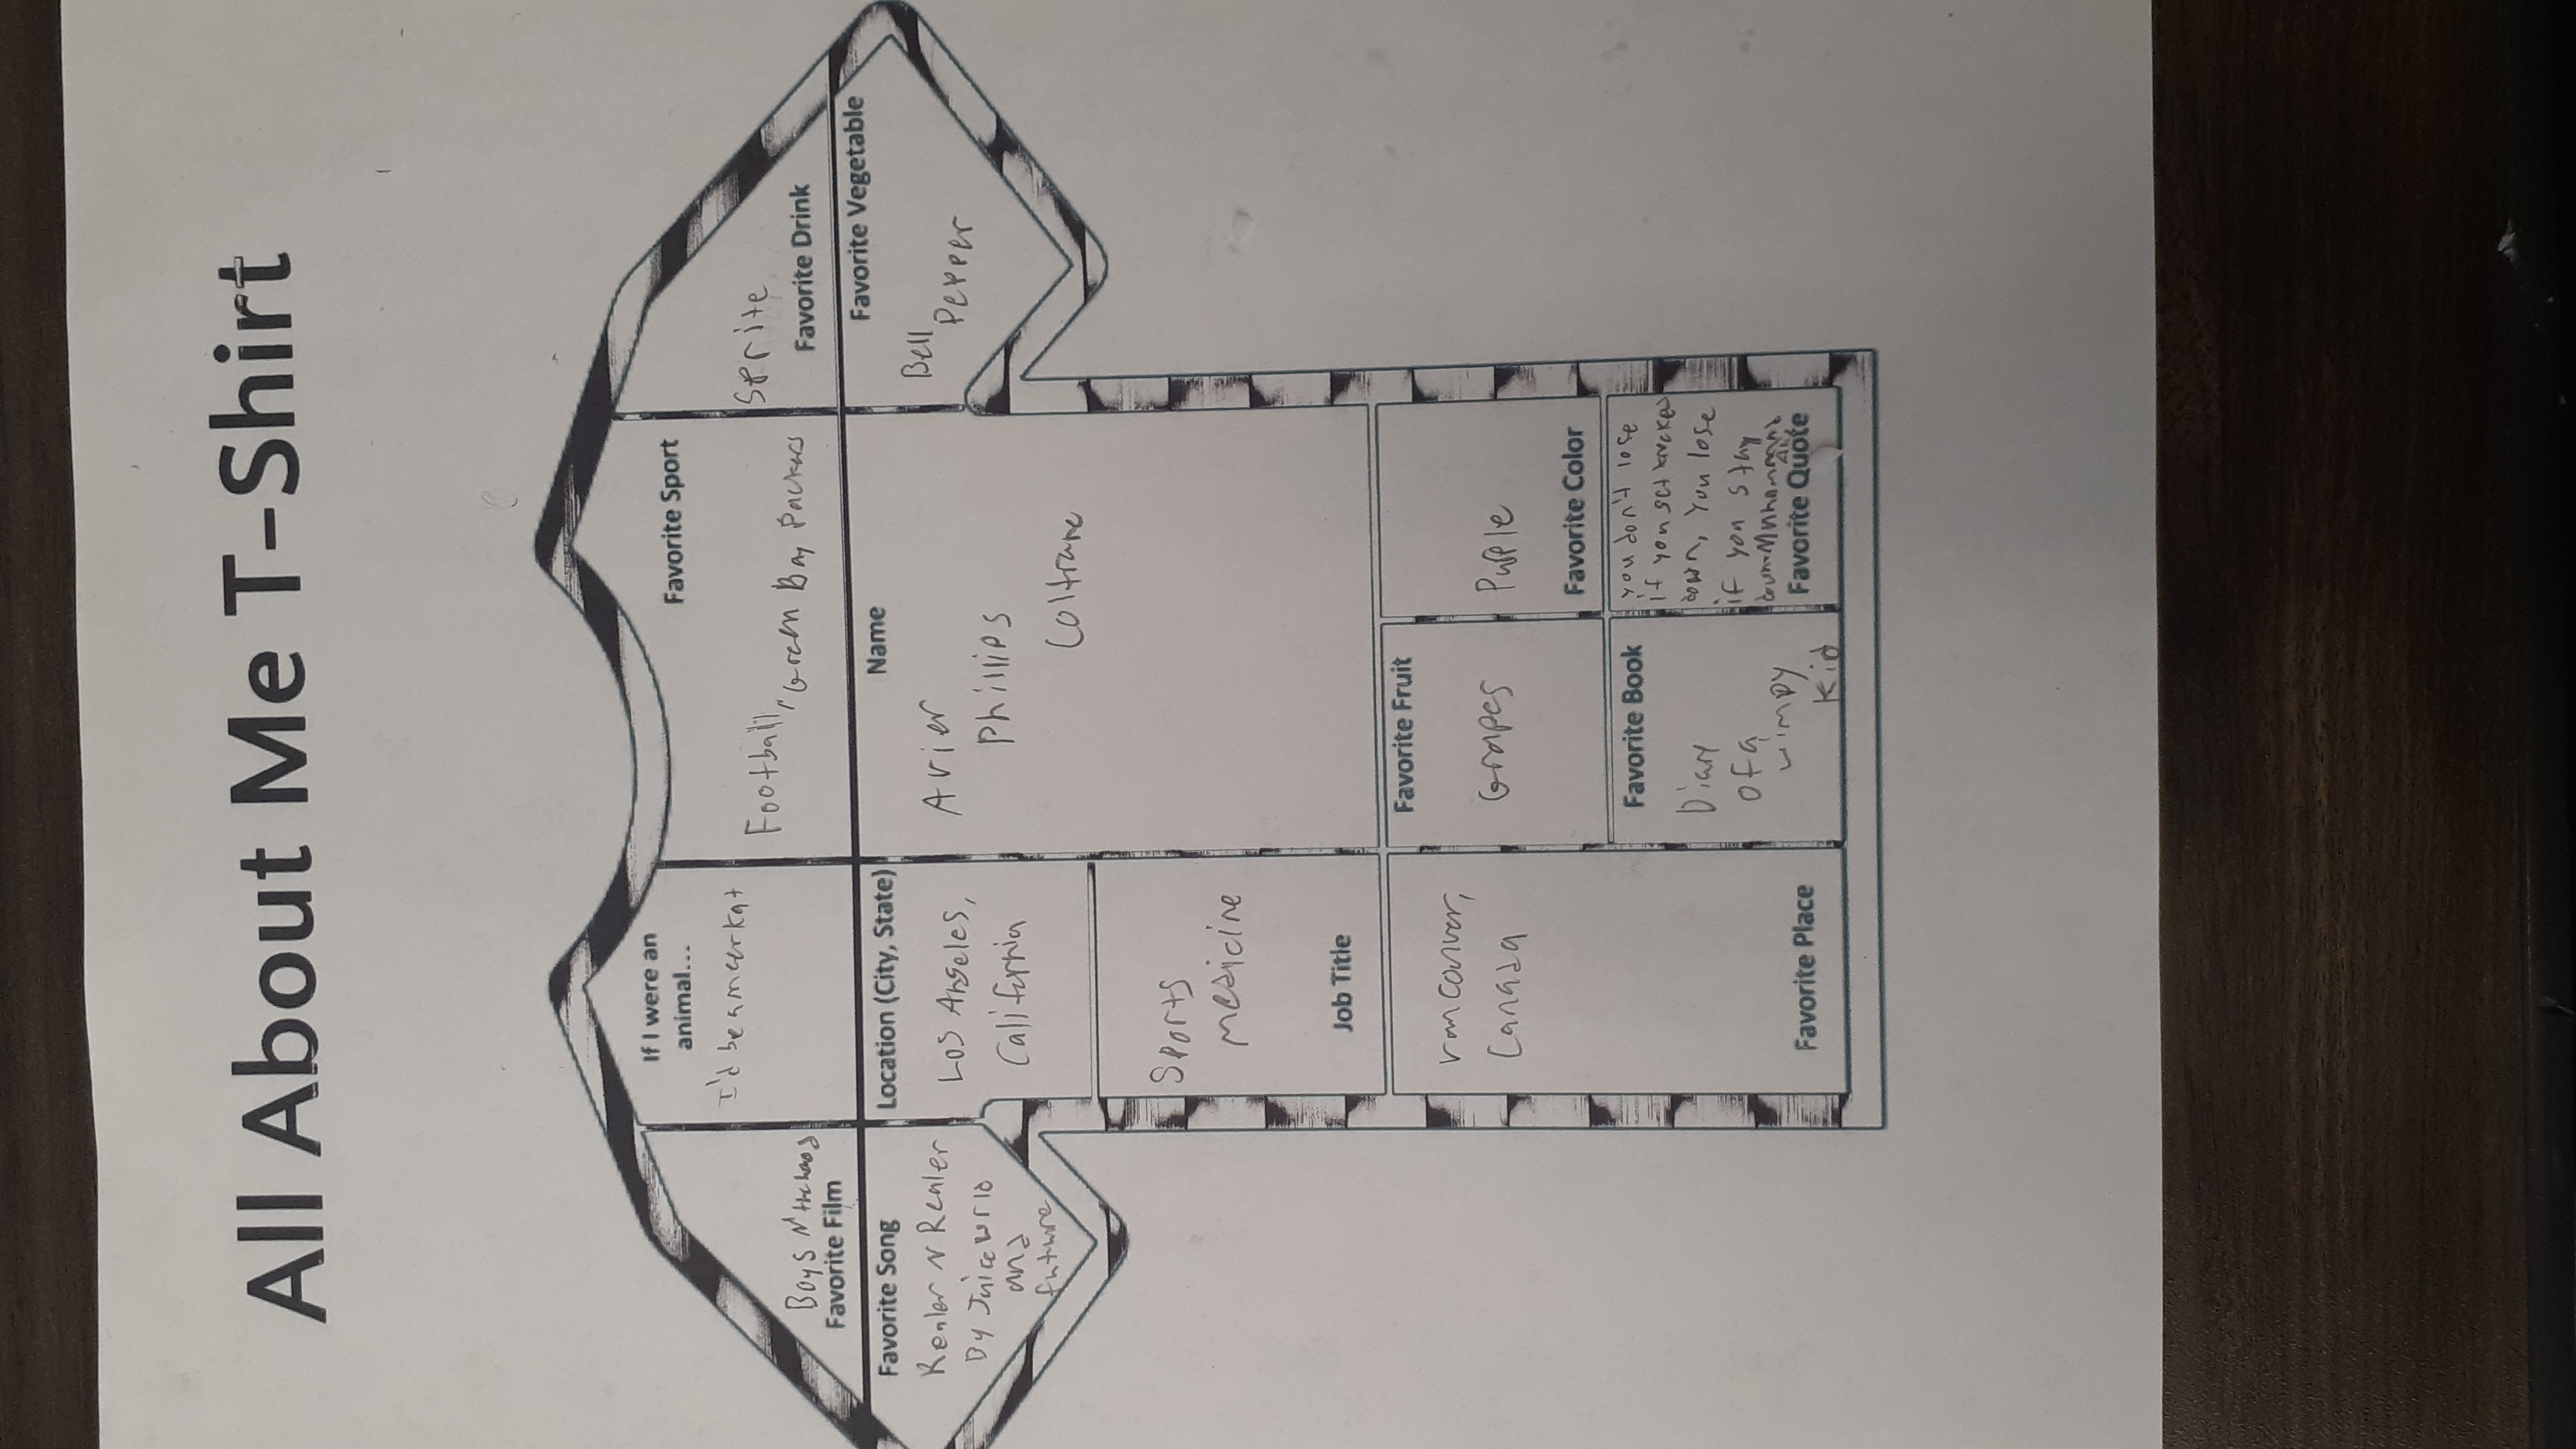 All About Me T-Shirt
If I were an
animal...
I'd be a meerkat
Favorite Sport
Football, Green Bay Packers
Sprite
Favorite Drink
Boys N' the hood
Favorite Film
Favorite Song
Realer N Realer
By Juice wrld
and
future
Location (City, State)
Los Angeles,
California
Name
Avier
Phillips
Coltrane
Favorite Vegetable
Bell
Pepper
Sports
medicine
Job Title
vancouver,
Canada
Favorite Place
Favorite Fruit
Grapes
Purple
Favorite Color
Favorite Book
Diary
of a
wimpy
Kid
you don't lose
if you get knocked
down, you lose
if you stay
down-Muhammad
Ali
Favorite Quote